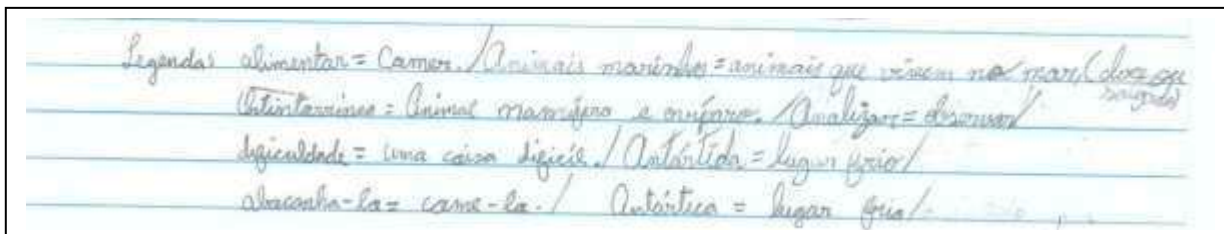 Legenda: alimentar = Comer. / Animais marinhos = animais que vivem no mar, (doce ou salgada)
= Animal mamífero e ovíparo. / Analizar = observar /
dificuldade = uma coisa difícil. / Antártida = lugar frio /
abocanha-la = come-la. / Antártica = lugar frio /